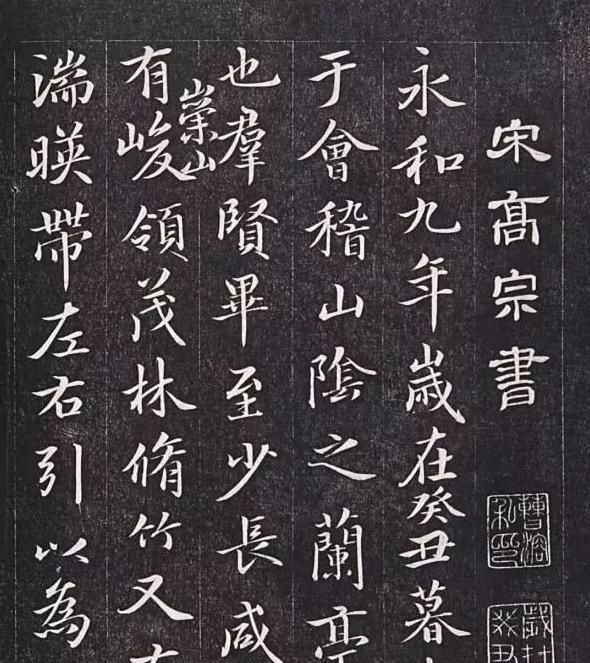 宋髙宗書
曹溶私印
永和九年歲在癸丑暮
于會稽山陰之蘭亭
也羣賢畢至少長咸
有崇山峻領茂林脩竹又有
湍暎帶左右引以為